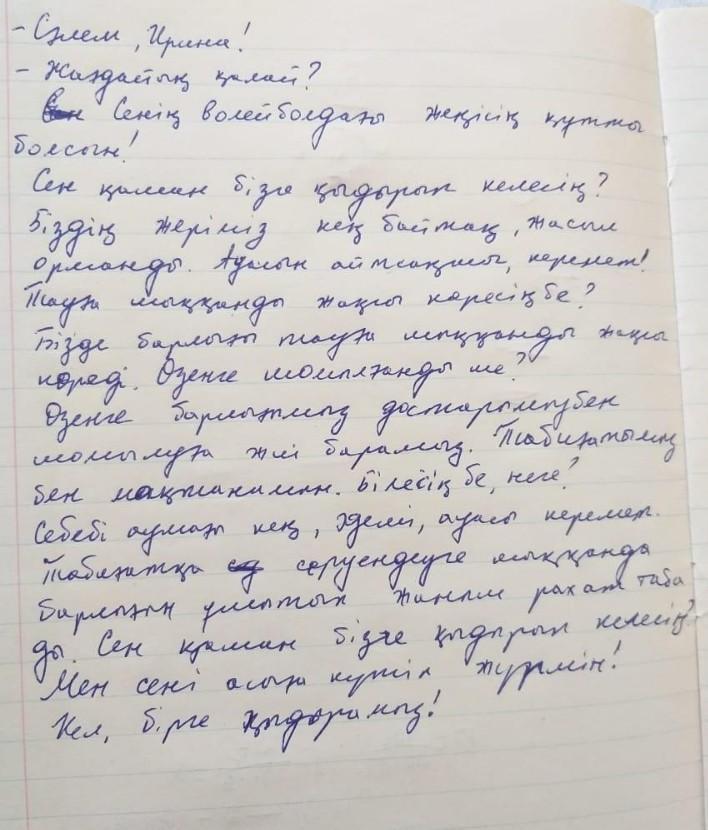 - Сәлем, Ирина!
- Жағдайың қалай?
Сенің волейболдағы жеңісің құтты
болсын!
Сен қашан бізге қыдырып келесің?
Біздің жеріміз кең байтақ, жасыл
орманды. Ауасын айтсаңшы, керемет!
Тауға шыққанды жақсы көресің бе?
Бізде барлығы тауға шыққанды жақсы
көреді. Өзенге шомылғанды ше?
Өзенге барлығымыз достарымызбен
шомылуға жиі барамыз. Табиғатымыз
бен мақтанамын. Білесің бе, неге?
Себебі аумағы кең, әдемі, ауасы керемет.
Табиғатқа серуендеуге шыққанда
барлығын ұмытып жаным рахат таба
ды. Сен қашан бізге қыдырып келесің?
Мен сені асыға күтіп жүрмін!
Кел, бірге қыдырамыз!